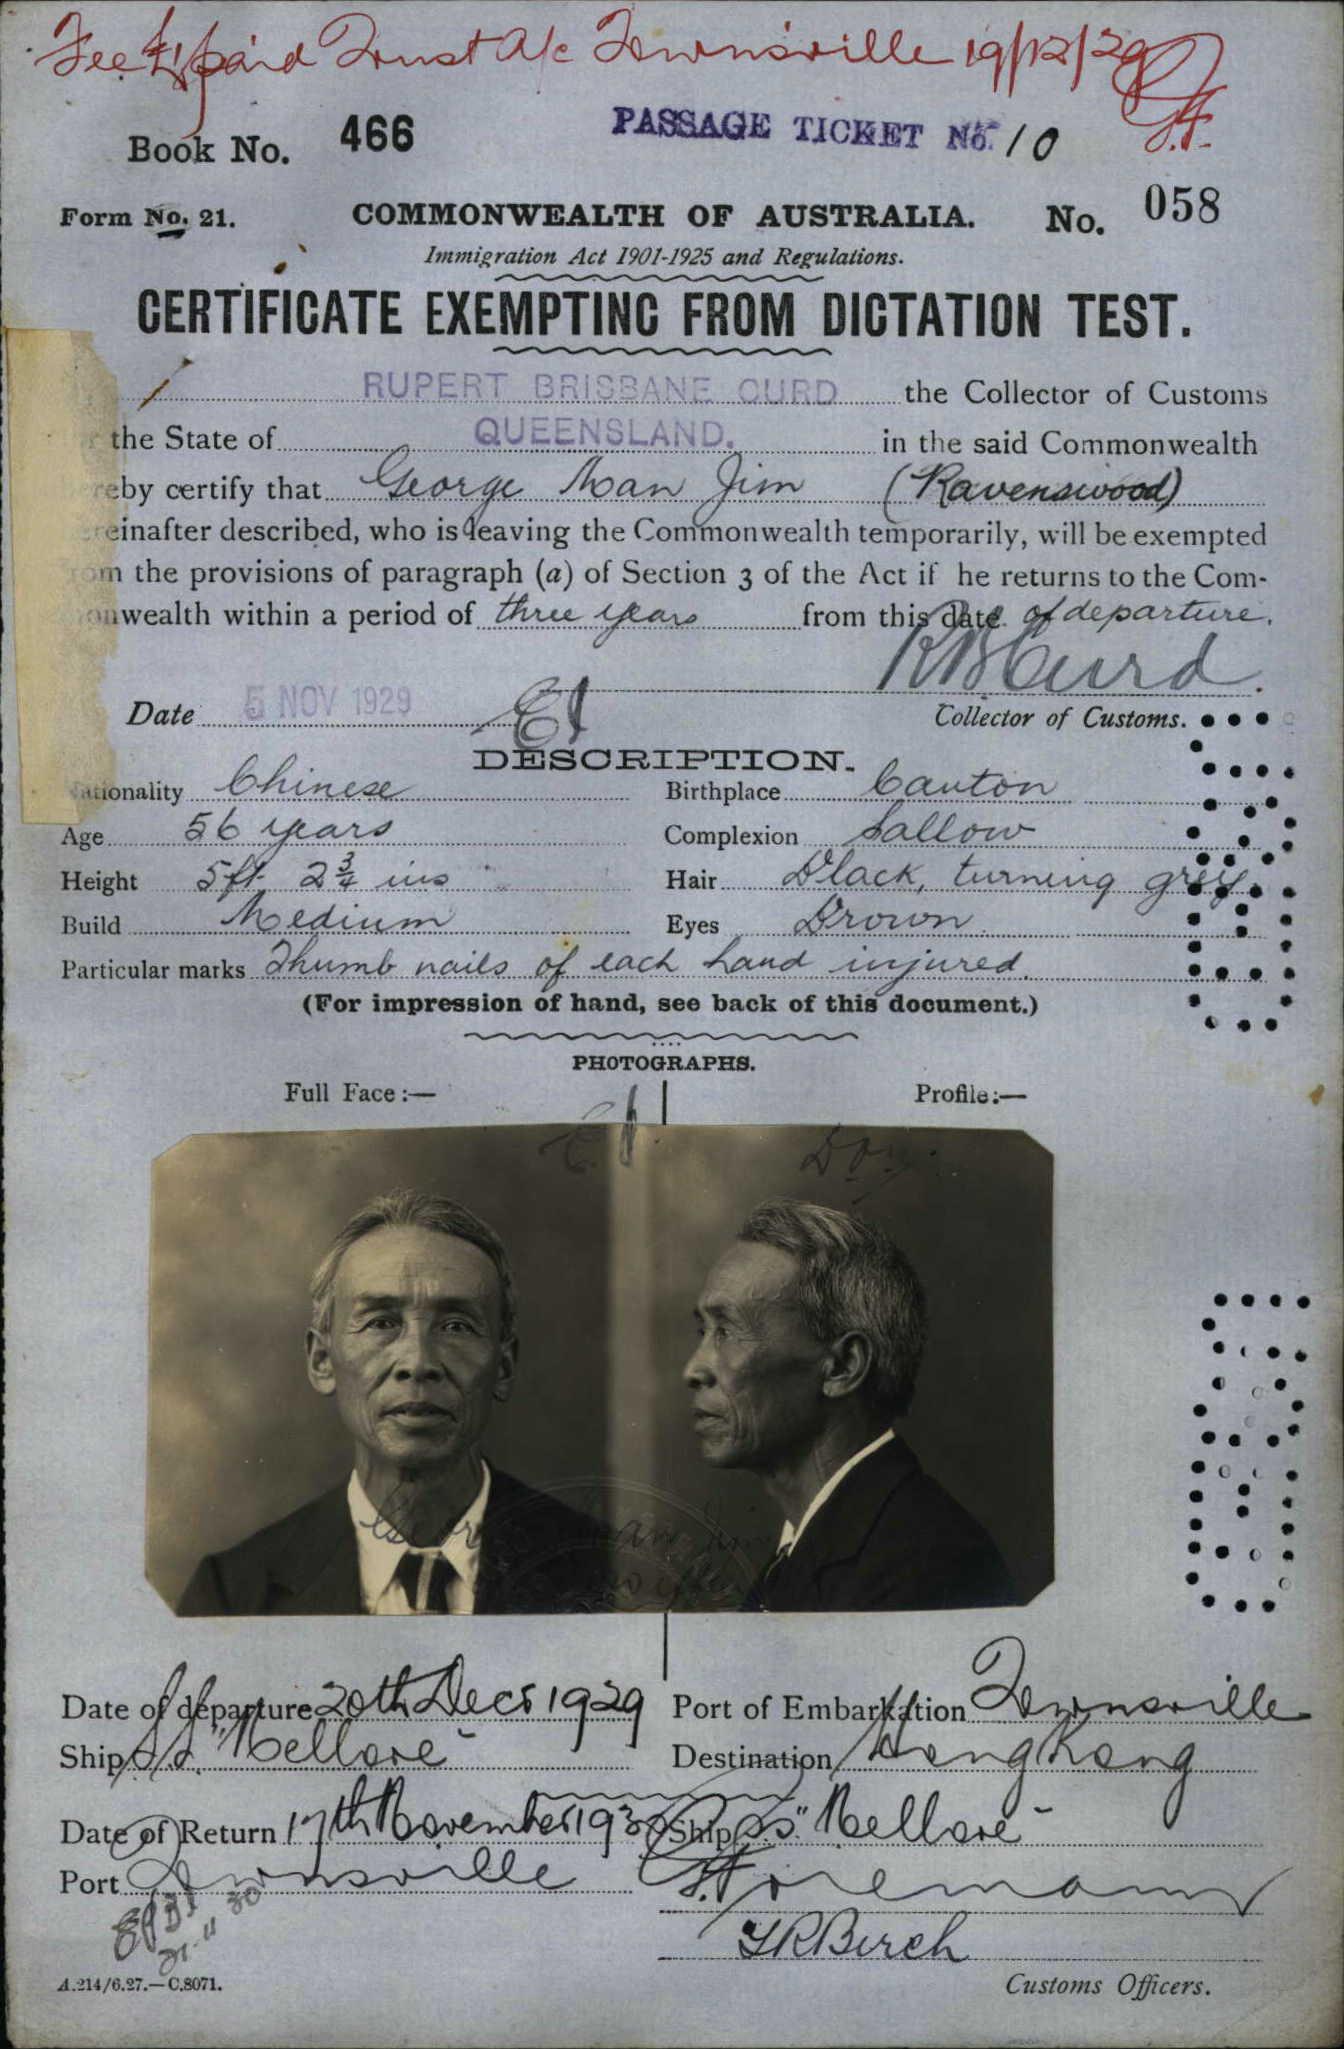 Fee £1 paid Trust A/c Townsville 19/12/29
J.F.
Book No. 466
PASSAGE TICKET No. 10
Form No. 21. COMMONWEALTH OF AUSTRALIA. No. 058
Immigration Act 1901-1925 and Regulations.
CERTIFICATE EXEMPTING FROM DICTATION TEST.
RUPERT BRISBANE CURD the Collector of Customs
the State of QUEENSLAND. in the said Commonwealth
ereby certify that George Man Jim (Ravenswood)
ereinafter described, who is leaving the Commonwealth temporarily, will be exempted
from the provisions of paragraph (a) of Section 3 of the Act if he returns to the Com-
monwealth within a period of three years from this date of departure.
R B Curd
Date 5 NOV 1929 Collector of Customs.
DESCRIPTION.
Nationality Chinese Birthplace Canton
Age 56 years Complexion Sallow
Height 5ft 2 3/4 ins Hair Black, turning grey.
Build Medium Eyes Brown
Particular marks Thumb nails of each hand injured.
(For impression of hand, see back of this document.)
PHOTOGRAPHS.
Full Face:— Profile:—
George Man Jim
Date of departure 20th Decr 1929 Port of Embarkation Townsville
Ship S.S. "Nellore" Destination Hong Kong
Date of Return 17th November 1930 Ship SS "Nellore"
Port Townsville J. Foreman
21.11.30
J R Birch
A.214/6.27.—C.8071. Customs Officers.